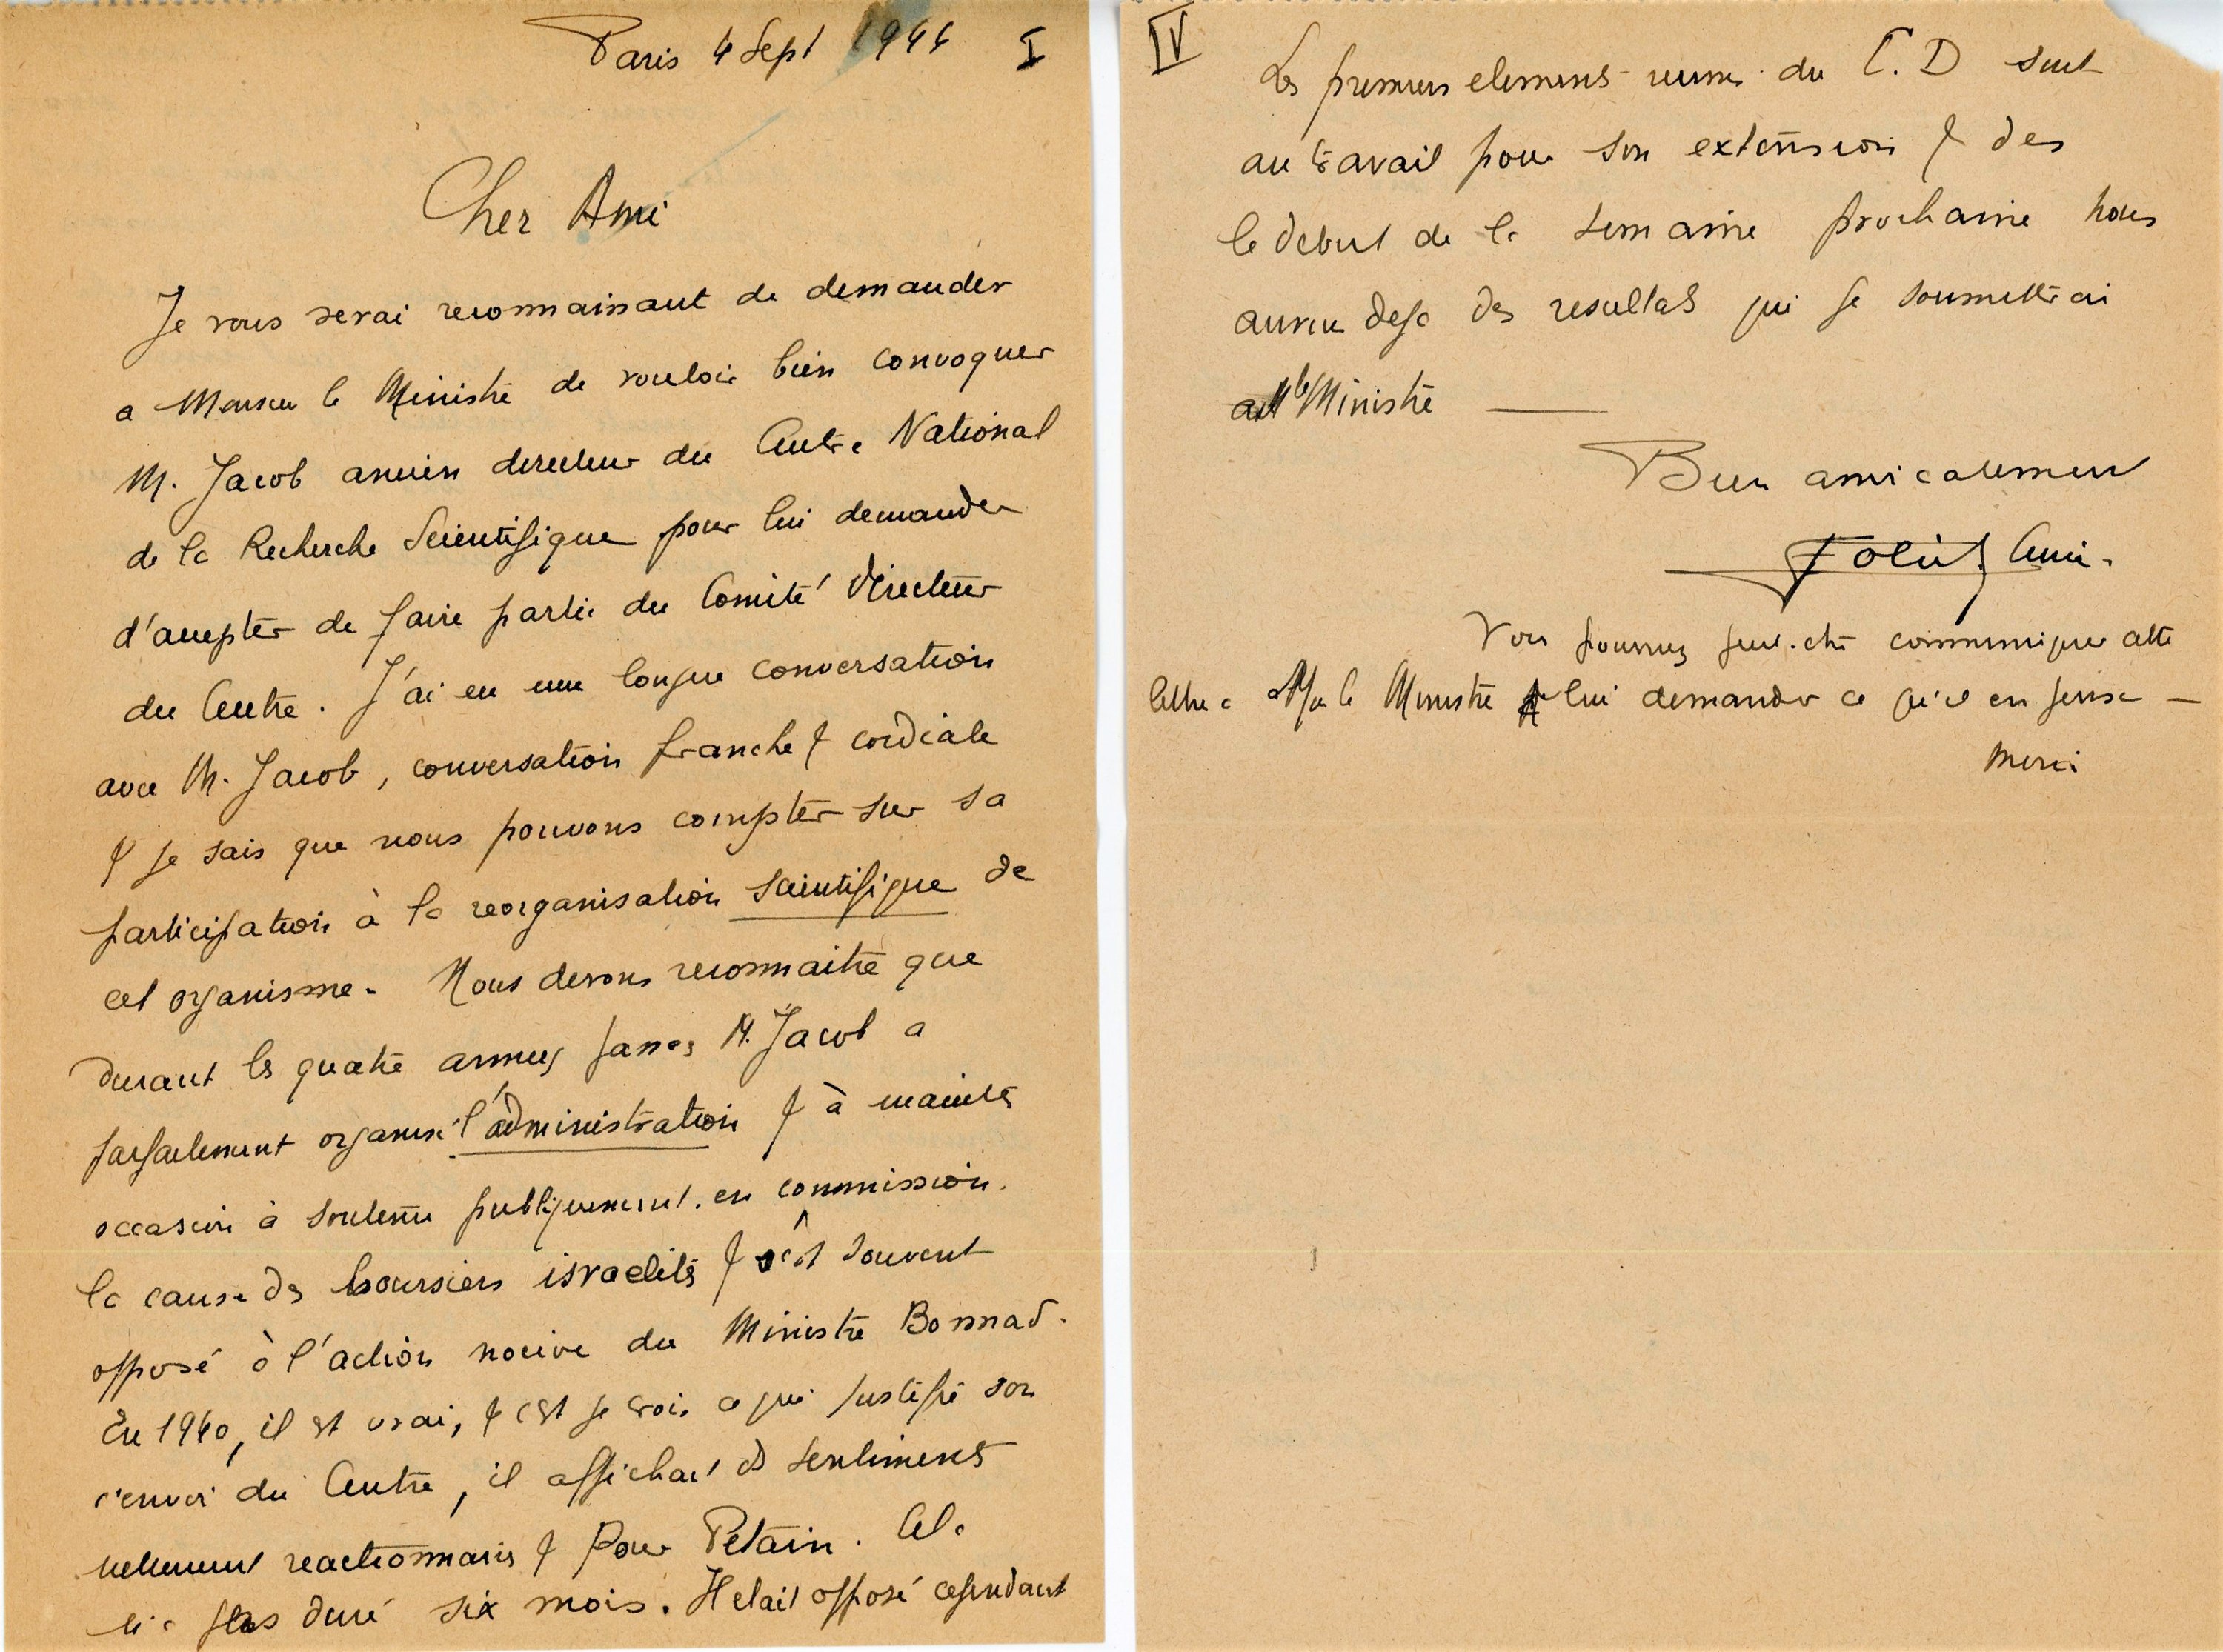 Paris 4 Sept 1944 I
Cher Ami
Je vous serai reconnaissant de demander
a Monsieur le Ministre de vouloir bien convoquer
M. Jacob ancien directeur du Centre National
de la Recherche Scientifique pour lui demander
d'accepter de faire partie du Comité directeur
du Centre. J'ai eu une longue conversation
avec M. Jacob, conversation franche & cordiale
& je sais que nous pouvons compter sur sa
participation à la reorganisation scientifique de
cet organisme. Nous devons reconnaitre que
durant les quatre années passées M. Jacob a
parfaitement organisé l'administration & à maintes
occasion à soutenu publiquement. en commission.
la cause des boursiers israelites & s'est souvent
opposé à l'action nocive du Ministre Bonnad.
En 1940, il est vrai, & c'est je crois ce qui justifie son
renvoi du Centre, il affichait des sentiments
nettement reactionnaires & pour Petain. Cela
n'a pas duré six mois. Il etait opposé cependant
IV
Les premiers elements reunis du C.D sont
au travail pour son extension & des
le debut de la semaine prochaine nous
aurons deja des resultats que je soumettrai
a M le Ministre —
Bien amicalement
Joliot Curie.
Vous pourrez peut-etre communiquer cette
lettre a M. le Ministre & lui demander ce qu'il en pense —
Merci